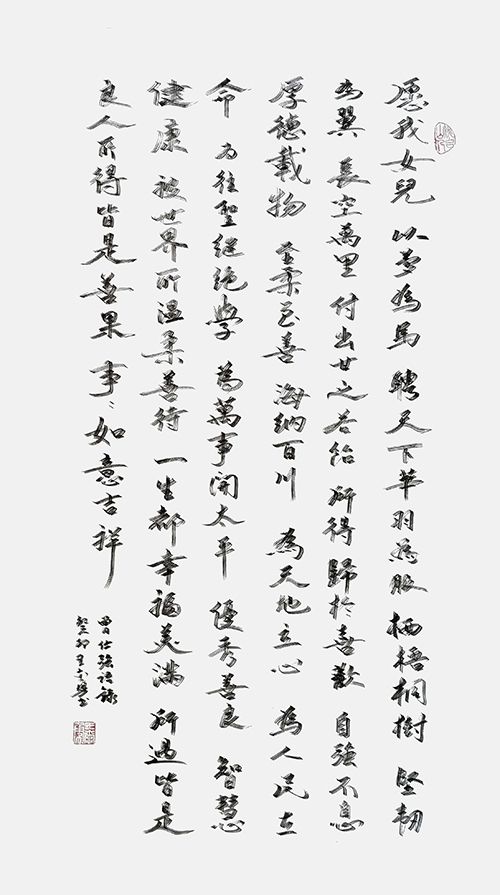 愿我女兒 以夢為馬 聘天下 華羽為服 栖梧桐樹 堅韌
為翼 長空萬里 付出甘之若飴 所得歸於喜歡 自強不息
厚德載物 至柔至善 海納百川 為天地立心 為人民立
命 為往聖繼絕學 為萬事開太平 優秀善良 智慧
健康 被世界所溫柔善待 一生都幸福美滿 所遇皆是
良人 所得皆是善果 事〻如意吉祥
曾仕強語錄
癸卯 書